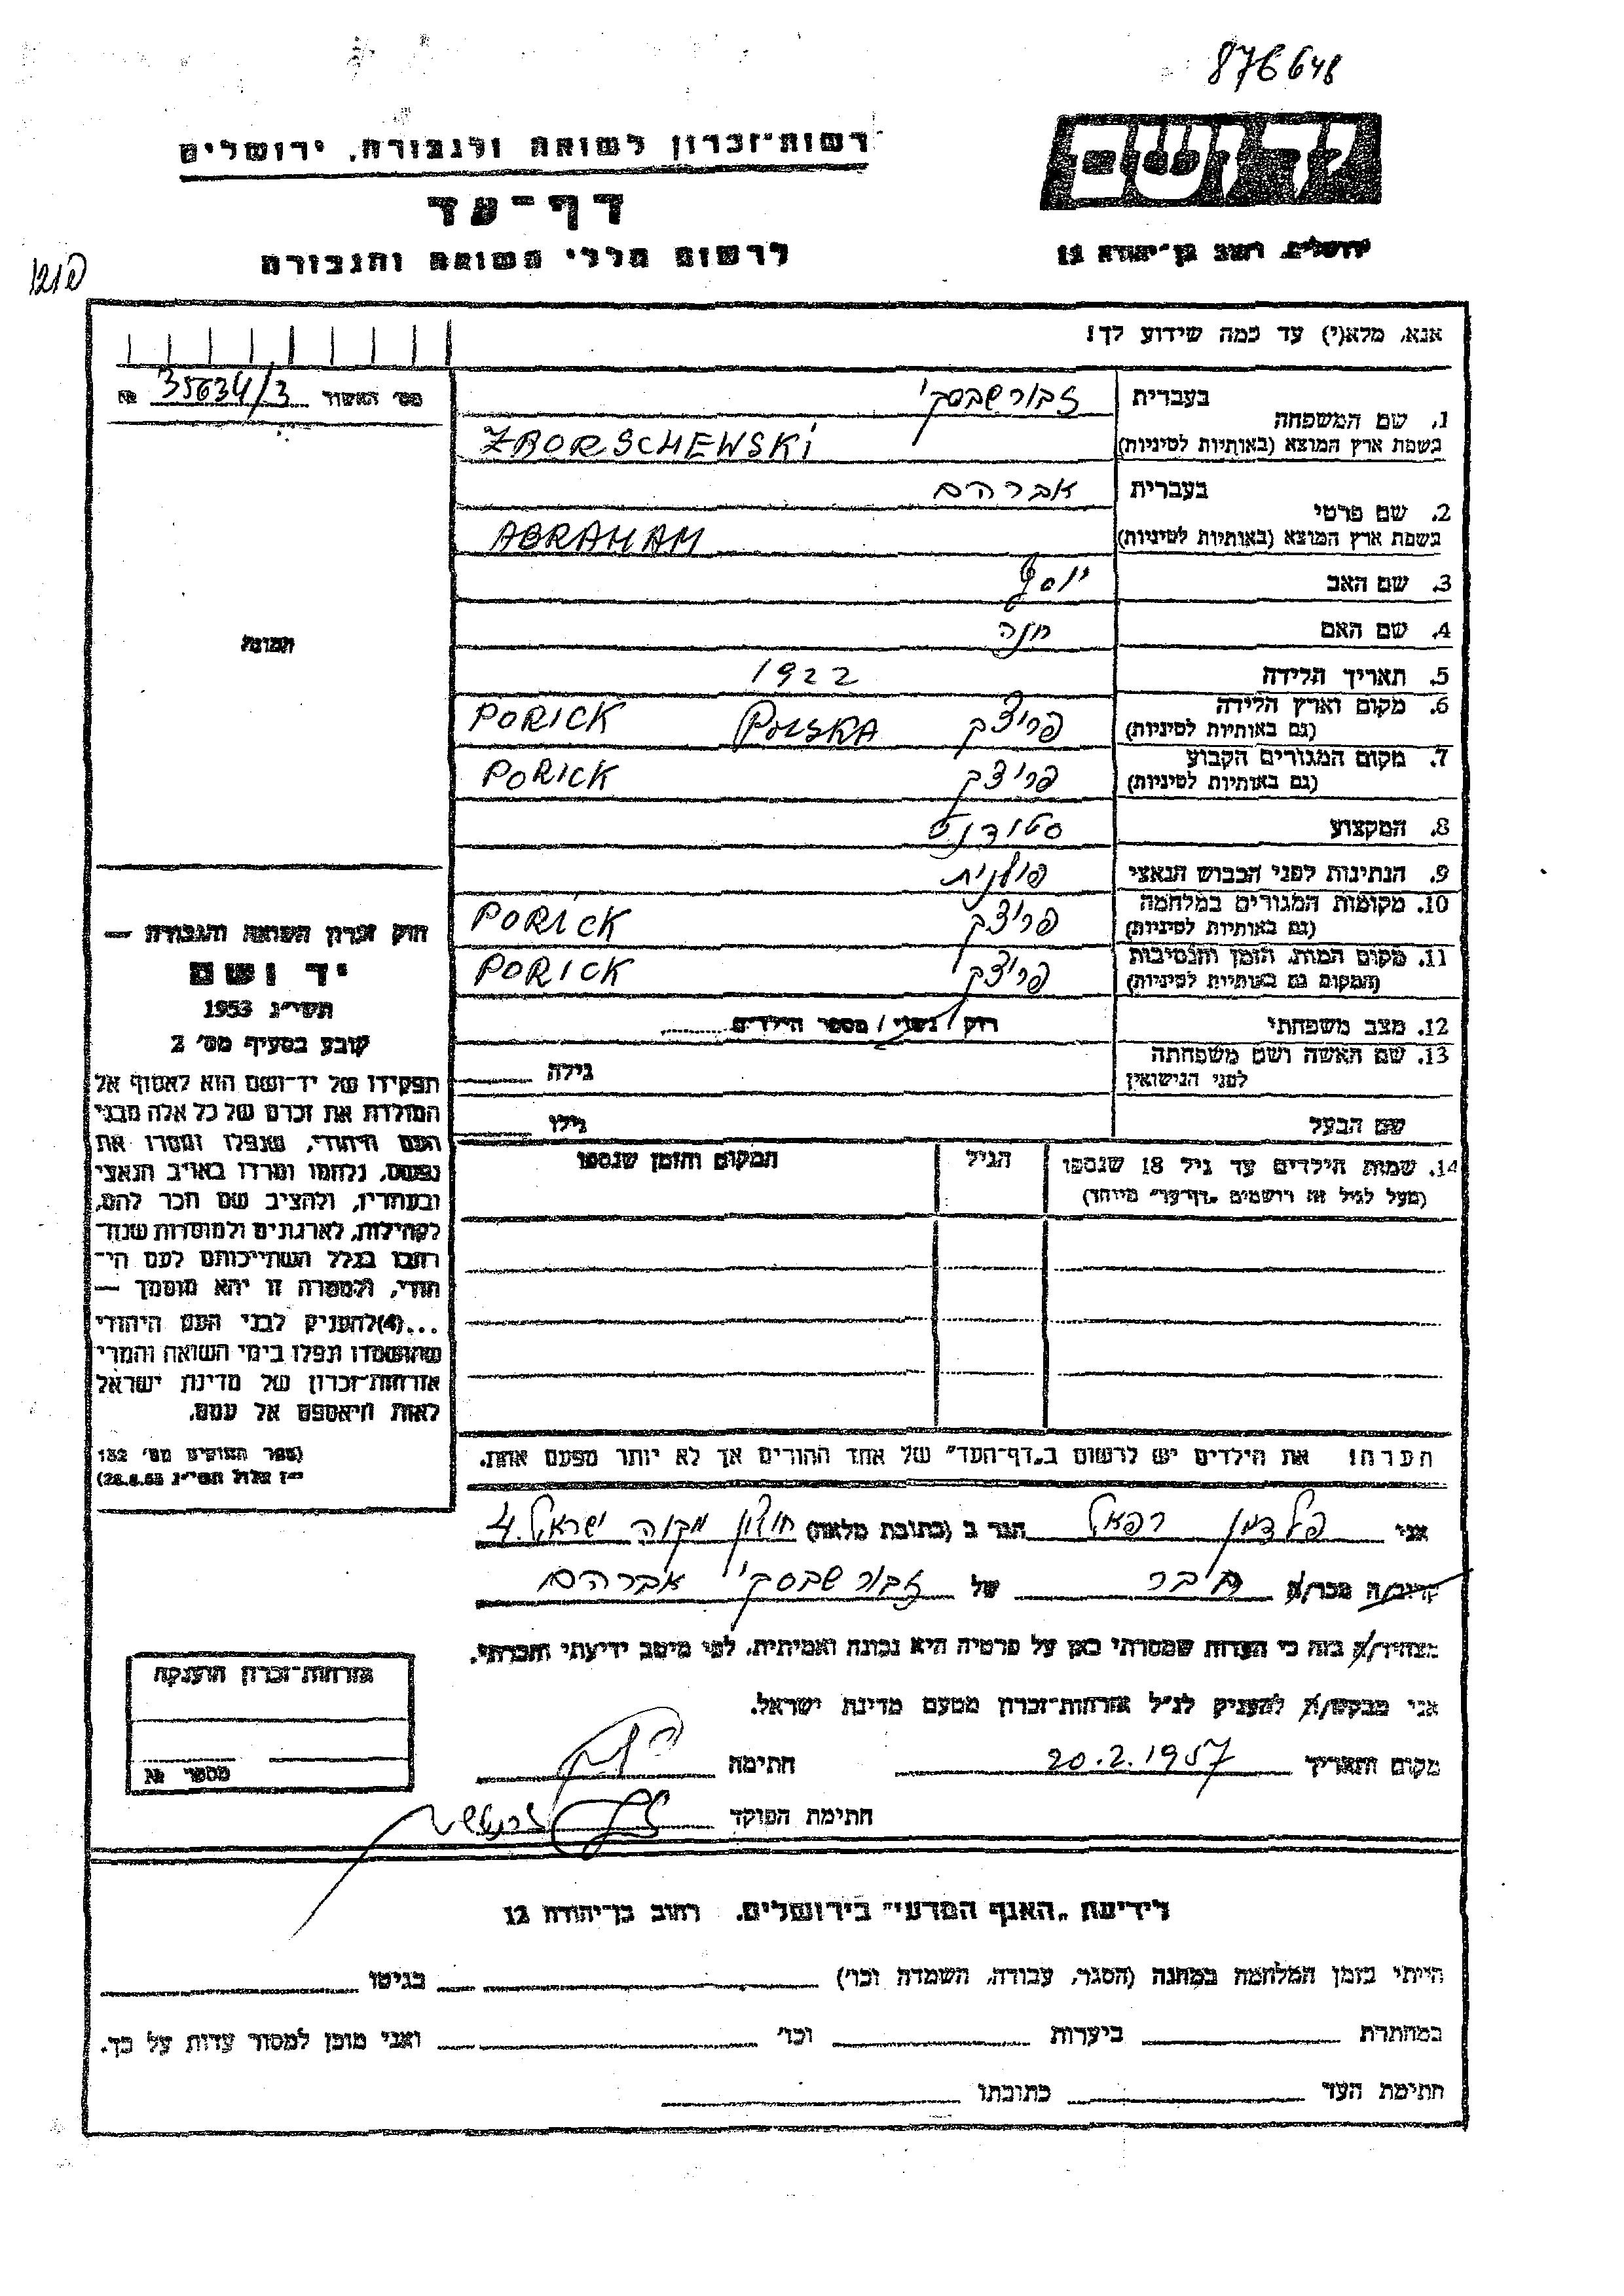 876648
רשות־זכרון לשואה ולגבורה, ירושלים
יד ושם
דף־עד
לרשום חללי השואה והגבורה
ירושלים, רחוב בן־יהודה 12
אנא, מלא(י) עד כמה שידוע לך!
מס׳ האשור 35634/3 №
1. שם המשפחה
בעברית זבורשבסקי
בשפת ארץ המוצא (באותיות לטיניות) ZBORSCHEWSKI
2. שם פרטי
בעברית אברהם
בשפת ארץ המוצא (באותיות לטיניות) ABRAHAM
3. שם האב יוסף
4. שם האם חנה
5. תאריך הלידה 1922
6. מקום וארץ הלידה (גם באותיות לטיניות) פריצק POLSKA PORICK
7. מקום המגורים הקבוע (גם באותיות לטיניות) פריצק PORICK
8. המקצוע סטודנט
9. הנתינות לפני הכבוש הנאצי פולנית
10. מקומות המגורים במלחמה (גם באותיות לטיניות) פריצק PORICK
11. מקום המות, הזמן והנסיבות (המקום גם באותיות לטיניות) פריצק PORICK
12. מצב משפחתי רווק / נשוי / מספר הילדים
13. שם האשה ושם משפחתה לפני הנישואין גילה
שם הבעל גילו
14. שמות הילדים עד גיל 18 שנספו (מעל לגיל זה רושמים „דף־עד״ מיוחד) הגיל המקום והזמן שנספו
הערה: את הילדים יש לרשום ב„דף־העד״ של אחד ההורים אך לא יותר מפעם אחת.
תמונה
חוק זכרון השואה והגבורה —
יד ושם
תשי״ג 1953
קובע בסעיף מס׳ 2
תפקידו של יד־ושם הוא לאסוף אל
המולדת את זכרם של כל אלה מבני
העם היהודי, שנפלו ומסרו את
נפשם, נלחמו ומרדו באויב הנאצי
ובעוזריו, ולהציב שם וזכר להם,
לקהילות, לארגונים ולמוסדות שנח־
רבו בגלל השתייכותם לעם הי־
הודי, ולמטרה זו יהא מוסמך —
...(4)להעניק לבני העם היהודי
שהושמדו ונפלו בימי השואה והמרי
אזרחות־זכרון של מדינת ישראל
לאות היאספם אל עמם.
(ספר החוקים מס׳ 132
י״ז אלול תשי״ג 28.8.53)
אני פלדמן רפאל הגר ב (כתובת מלאה) חולון מקוה ישראל 4
קרוב/ה מכר/ה חבר של זבורשבסקי אברהם
מצהיר/ה בזה כי העדות שמסרתי כאן על פרטיה היא נכונה ואמיתית, לפי מיטב ידיעתי והכרתי.
אני מבקש/ת להעניק לנ״ל אזרחות־זכרון מטעם מדינת ישראל.
מקום ותאריך 20.2.1957 חתימה
חתימת הפוקד
אזרחות־זכרון הוענקה
מספר №
לידיעת „האגף המדעי״ בירושלים, רחוב בן־יהודה 12
הייתי בזמן המלחמה במחנה (הסגר, עבודה, השמדה וכו׳) בגיטו
במחתרת ביערות וכו׳ ואני מוכן למסור עדות על כך.
חתימת העד כתובתו